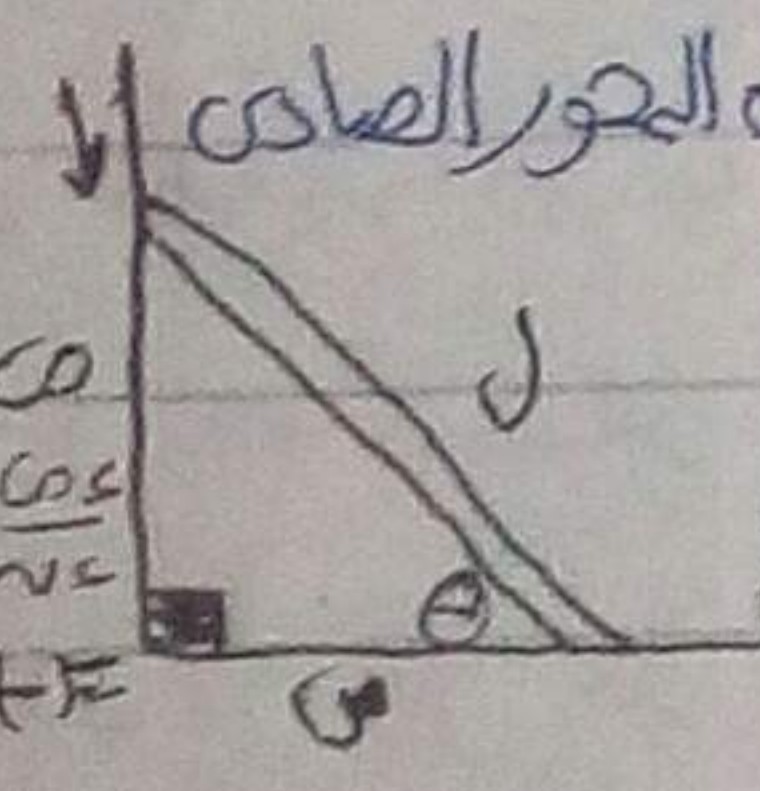 المحور الصادى
ل
ص
ءص
ءن
θ
س